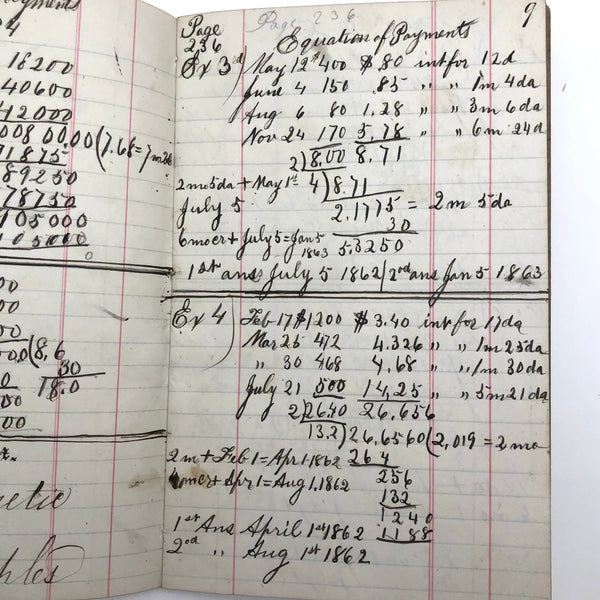 Payments
4
18200
40600
42000
008 00.00(7.68=7m
71875
89250
78750
105000
105000
0
00
00
000(8,6
30
18.0
00
etic
Page 236
Page
236
9
Equation of Payments
Ex 3d) May 12th 400 $.80 int for 12d
June 4 150 .85 " " 1m 4da
Aug 6 80 1.28 " " 3m 6da
Nov 24 170 5.78 " " 6m 24d
2)8.00 8.71
2mo5da + May 1st 4)8.71
July 5 2.1775 = 2m 5da
30
6mocr + July 5 = Jan 5
1863 5.3250
1st ans July 5 1862 / 2nd ans Jan 5 1863
Ex 4) Feb 17 $1200 $3.40 int for 17da
Mar 25 472 4.326 " " 1m 25da
" 30 468 4.68 " " 1m 30da
July 21 500 14,25 " " 5m 21da
2)2640 26,656
132)26,6560(2,019 = 2mo
2m + Feb 1 = Apr 1 1862 264
4mcr + Apr 1 = Aug 1, 1862 256
132
1240
1st Ans April 1st 1862 1188
2nd " Aug 1st 1862